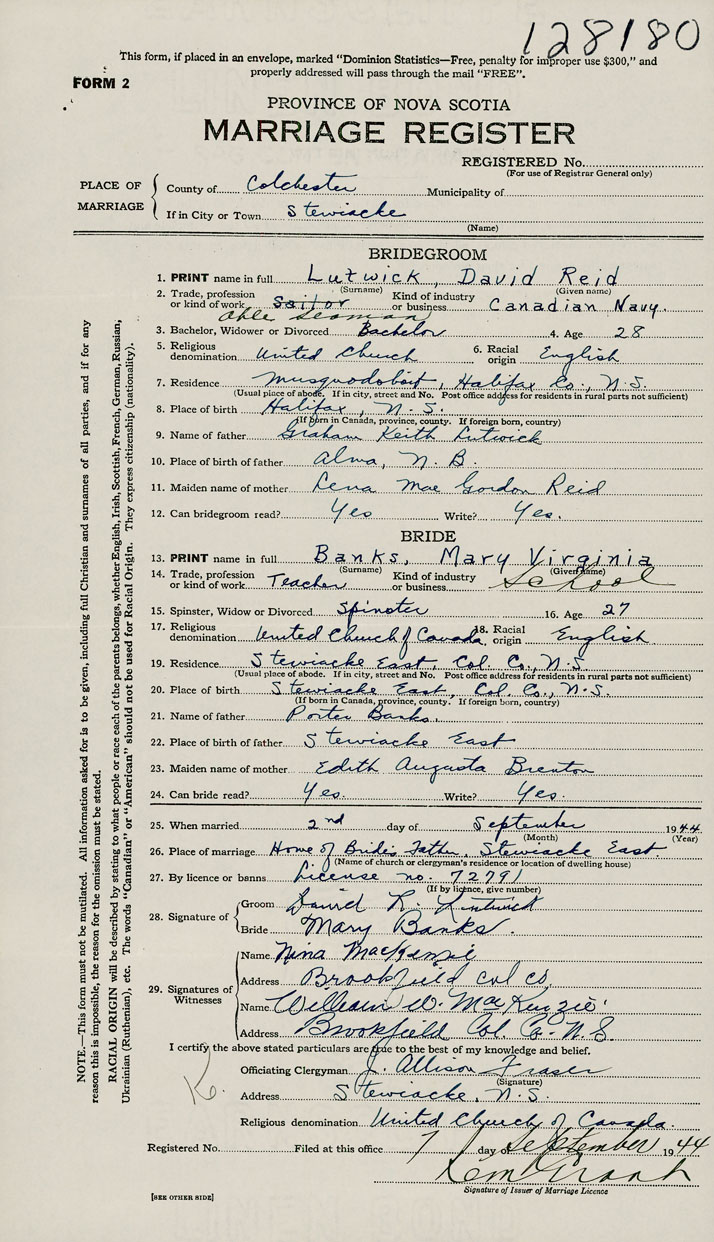 128180
This form, if placed in an envelope, marked "Dominion Statistics—Free, penalty for improper use $300," and
properly addressed will pass through the mail "FREE".
FORM 2
PROVINCE OF NOVA SCOTIA
MARRIAGE REGISTER
REGISTERED No.
(For use of Registrar General only)
PLACE OF MARRIAGE
County of Colchester Municipality of
If in City or Town Stewiacke
(Name)
BRIDEGROOM
1. PRINT name in full Lutwick, David Reid
(Surname) (Given name)
2. Trade, profession or kind of work Sailor Kind of industry or business Canadian Navy.
Able Seaman
3. Bachelor, Widower or Divorced Bachelor 4. Age 28
5. Religious denomination United Church 6. Racial origin English
7. Residence Musquodoboit, Halifax Co., N.S.
(Usual place of abode. If in city, street and No. Post office address for residents in rural parts not sufficient)
8. Place of birth Halifax, N.S.
(If born in Canada, province, county. If foreign born, country)
9. Name of father Graham Keith Lutwick
10. Place of birth of father Alma, N.B.
11. Maiden name of mother Lena Mae Gordon Reid
12. Can bridegroom read? Yes Write? Yes.
BRIDE
13. PRINT name in full Banks, Mary Virginia
(Surname) (Given name)
14. Trade, profession or kind of work Teacher Kind of industry or business School
15. Spinster, Widow or Divorced Spinster 16. Age 27
17. Religious denomination United Church of Canada 18. Racial origin English
19. Residence Stewiacke East, Col. Co., N.S.
(Usual place of abode. If in city, street and No. Post office address for residents in rural parts not sufficient)
20. Place of birth Stewiacke East, Col. Co., N.S.
(If born in Canada, province, county. If foreign born, country)
21. Name of father Porter Banks.
22. Place of birth of father Stewiacke East
23. Maiden name of mother Edith Augusta Brenton
24. Can bride read? Yes. Write? Yes.
25. When married 2nd day of September 1944
(Month) (Year)
26. Place of marriage Home of Bride's Father, Stewiacke East.
(Name of church or clergyman's residence or location of dwelling house)
27. By licence or banns License no. 72791
(If by licence, give number)
28. Signature of
Groom David R. Lutwick
Bride Mary Banks.
29. Signatures of Witnesses
Name Nina MacKenzie
Address Brookfield Col Co
Name William W. MacKenzie
Address Brookfield Col. Co. N.S.
I certify the above stated particulars are true to the best of my knowledge and belief.
Officiating Clergyman J. Allison Fraser
(Signature)
Address Stewiacke, N.S.
Religious denomination United Church of Canada.
Registered No. Filed at this office 7 day of September 1944
Grant
Signature of Issuer of Marriage Licence
[SEE OTHER SIDE]
NOTE.—This form must not be mutilated. All information asked for is to be given, including full Christian and surnames of all parties, and if for any
reason this is impossible, the reason for the omission must be stated.
RACIAL ORIGIN will be described by stating to what people or race each of the parents belongs, whether English, Irish, Scottish, French, German, Russian,
Ukrainian (Ruthenian), etc. The words "Canadian" or "American" should not be used for Racial Origin. They express citizenship (nationality).